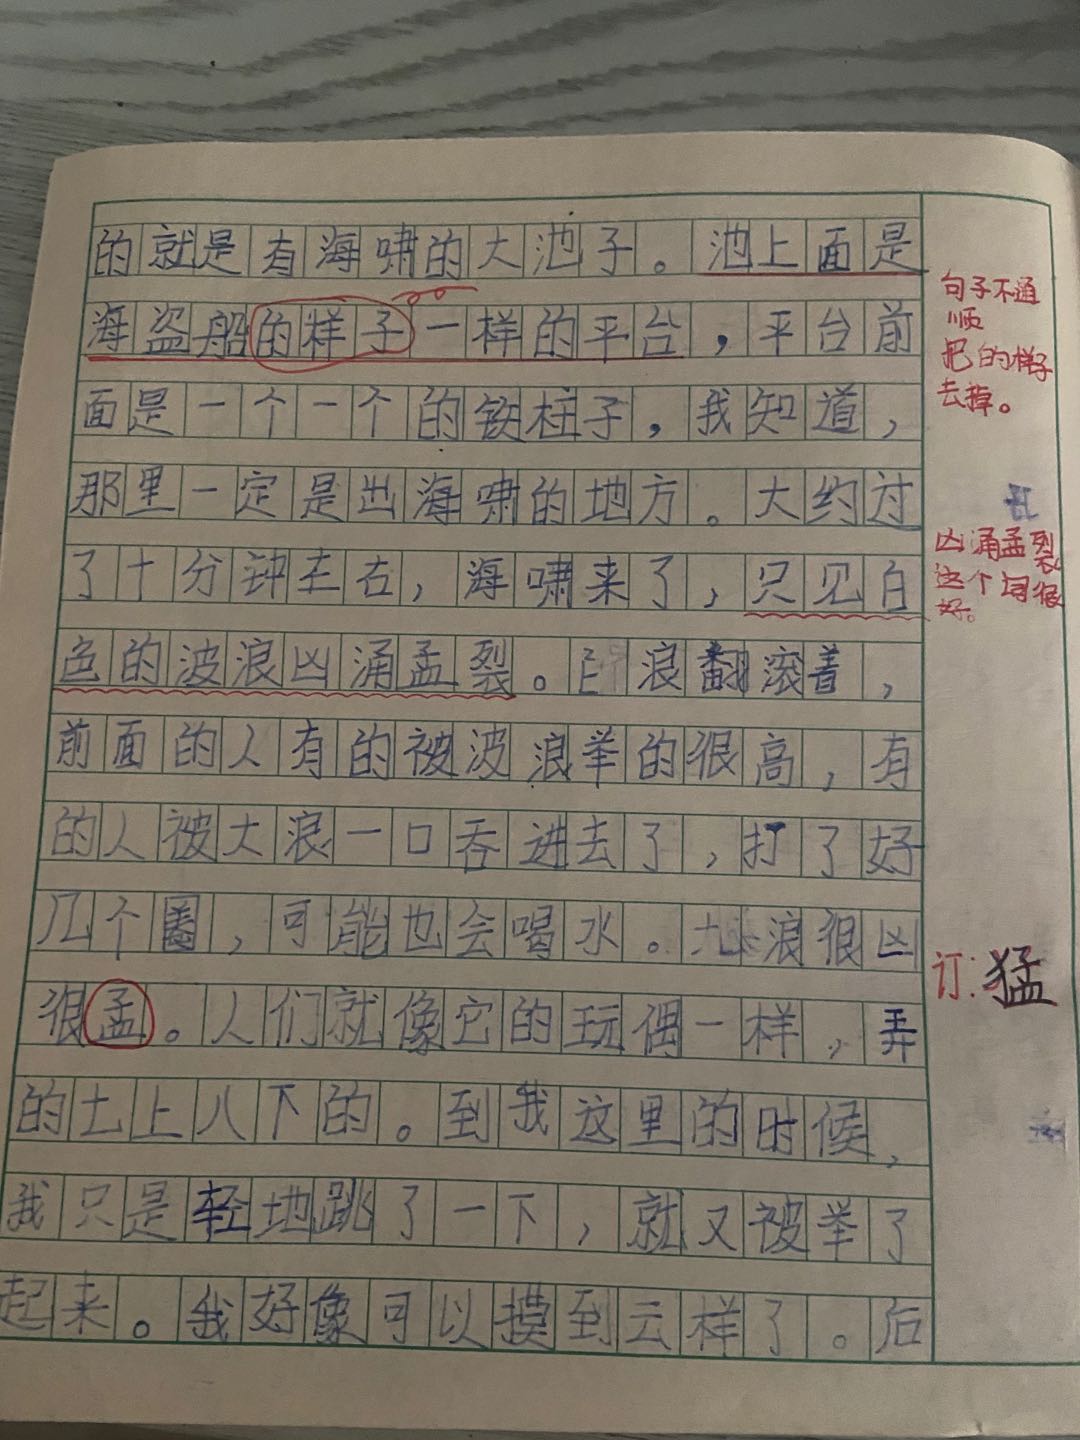 的就是有海啸的大池子。池上面是
海盗船的样子一样的平台，平台前
面是一个一个的铁柱子，我知道，
那里一定是出海啸的地方。大约过
了十分钟左右，海啸来了，只见白
色的波浪凶涌孟裂。浪翻滚着，
前面的人有的被波浪举的很高，有
的人被大浪一口吞进去了，打了好
几个圈，可能也会喝水。浪很凶
很孟。人们就像它的玩偶一样，弄
的七上八下的。到我这里的时候，
我只是轻地跳了一下，就又被举了
起来。我好像可以摸到云样了。后
句子不通
顺
把的样子
去掉。
凶涌孟裂
这个词很
好。
订：猛